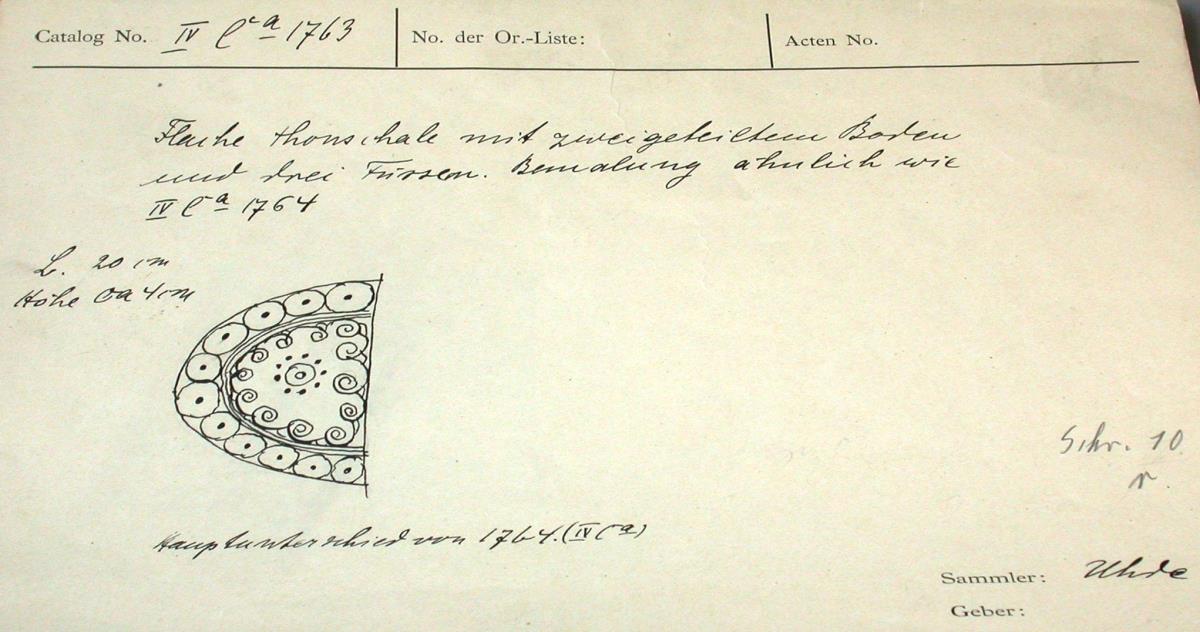 Catalog No. IV Ca 1763 No. der Or.-Liste: Acten No.
Flache Thonschale mit zweigeteiltem Boden
und drei Füssen. Bemalung ähnlich wie
IV Ca 1764
L. 20 cm
Höhe ca 4 cm
Hauptunterschied von 1764. (IV Ca)
Schr. 10
r.
Sammler: Uhde
Geber: